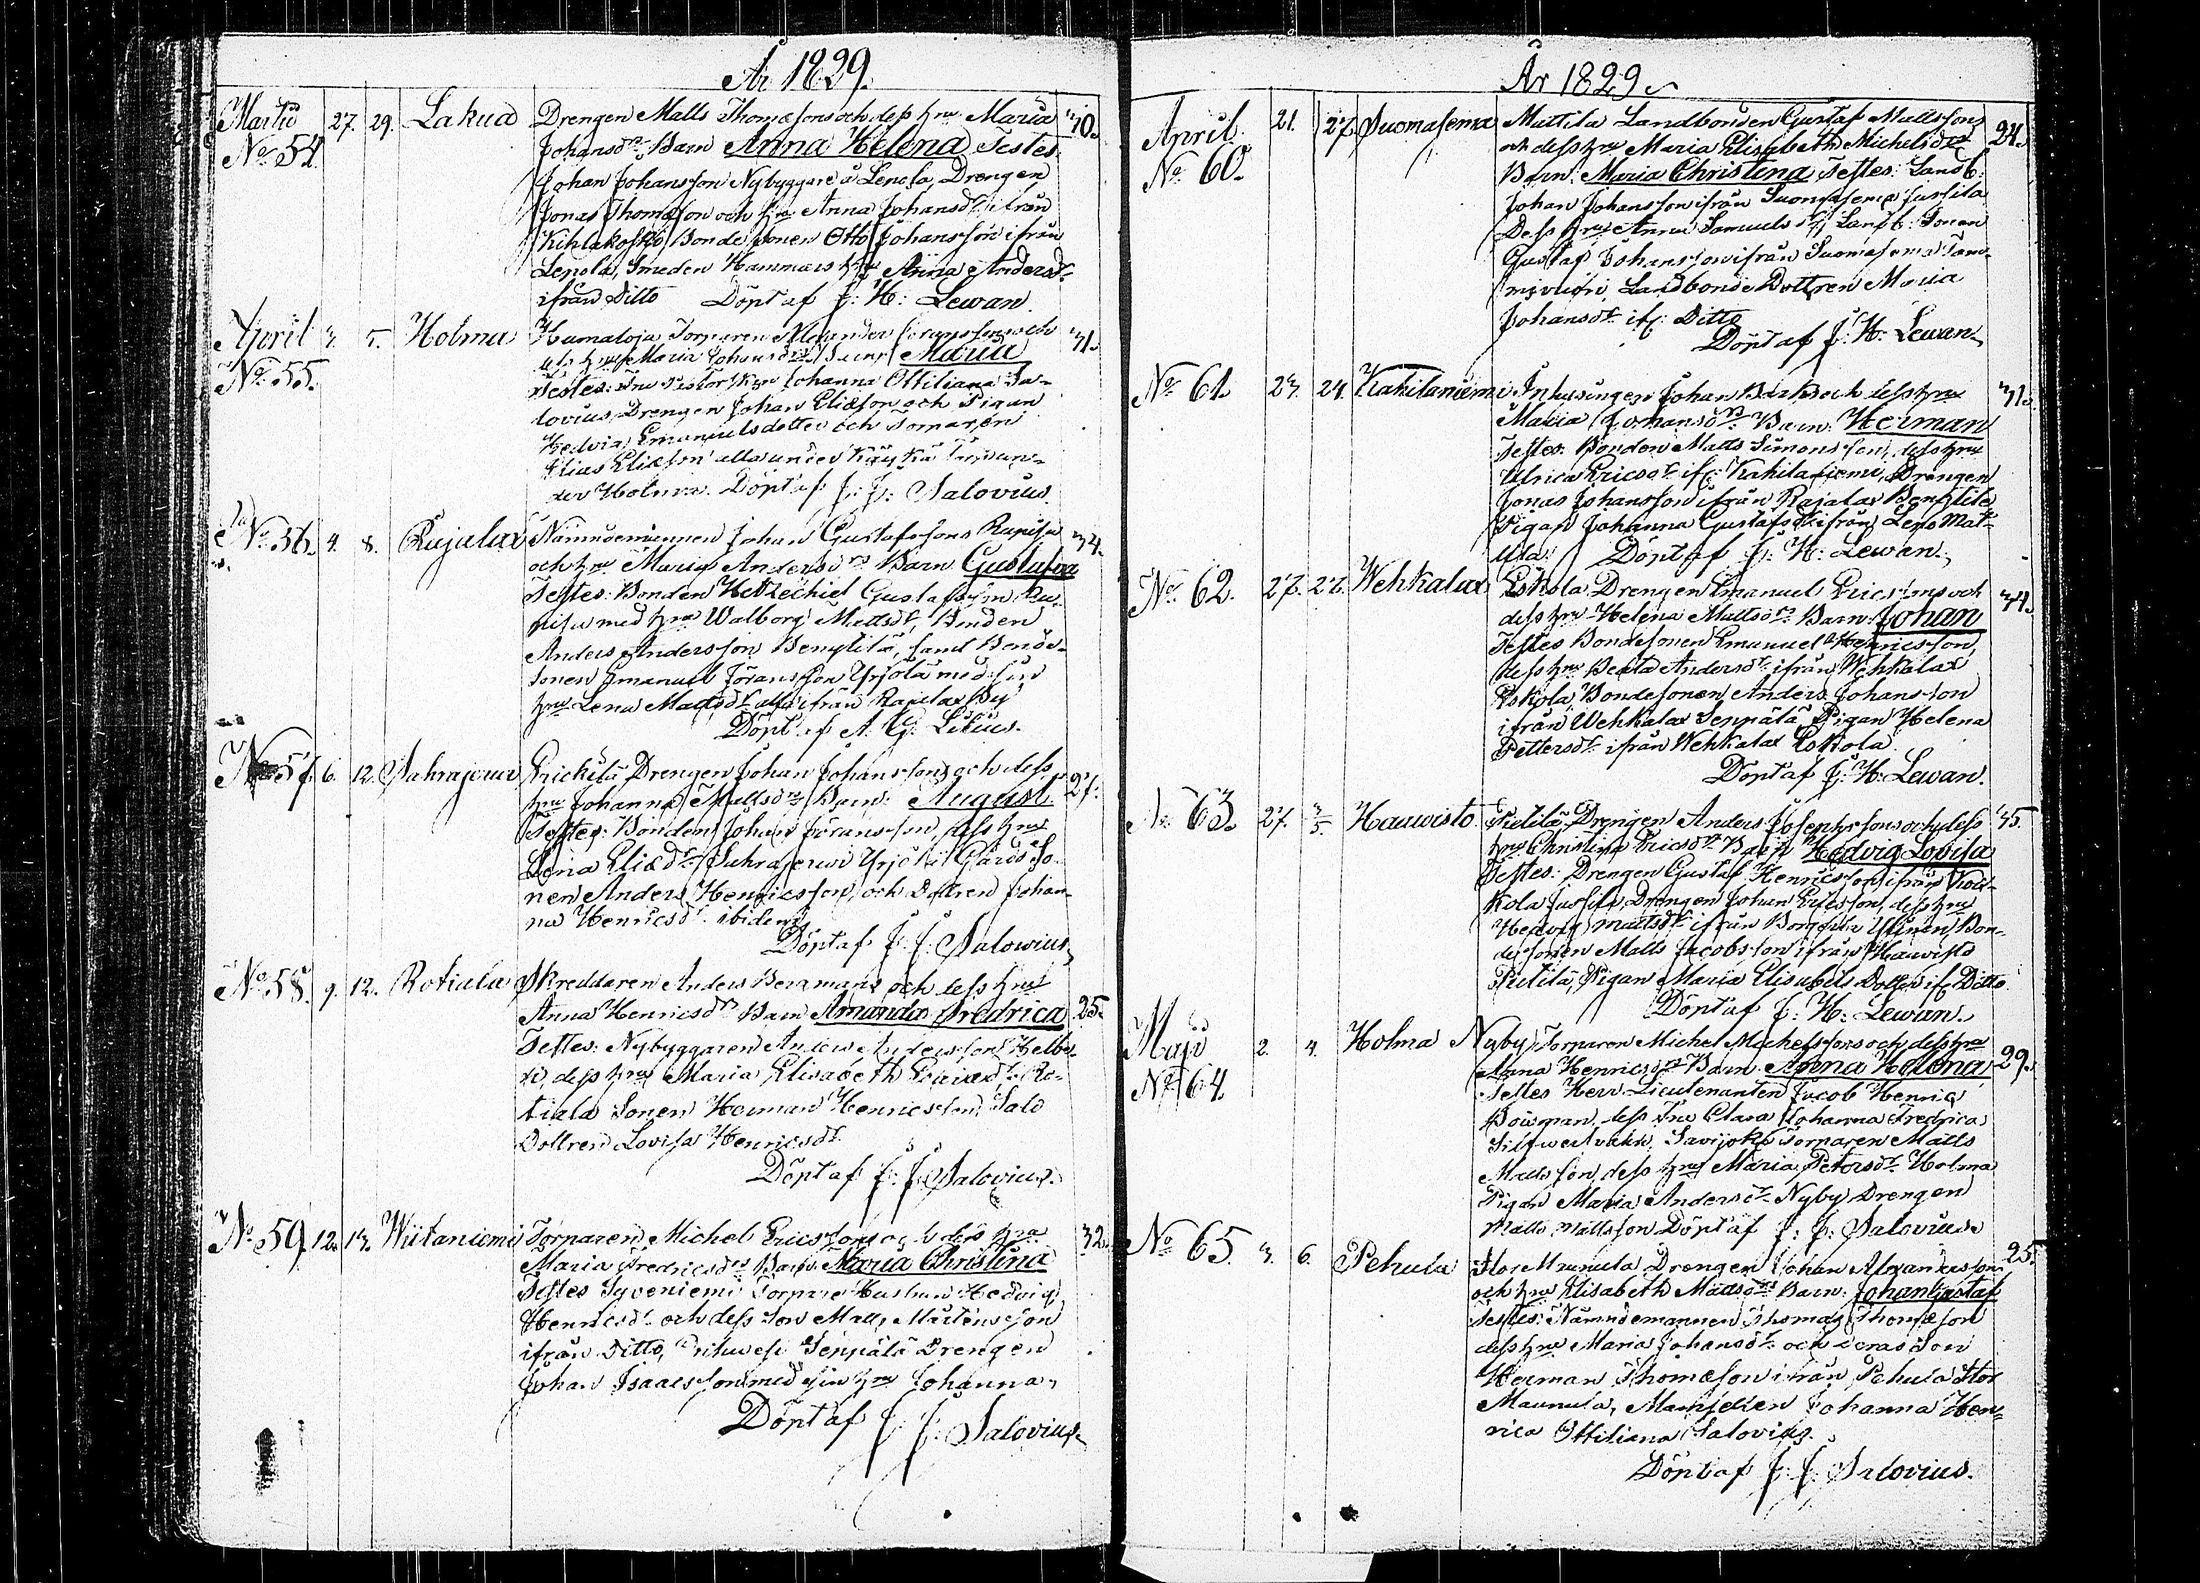 År 1829.
Martii 27. 29. Lakua Drengen Matts Thomæsons och dess hru Maria 40.
No 54. Johansdrs Barn Anna Helena Testes:
Johan Johansson Nybyggare å Lenola, Drengen
Jonas Thomæson och hru Anna Johansdr ifrån
Kihlakoski Bonde Sonen Otto Johansson ifrån
Lenola, Smeden Hammars hru Anna Andersdr
ifrån Ditto Döpt af J: H: Lewan.
April 3. 5. Holma Torparen Alexander och 31.
No 55. dess hru Maria Johansdrs Barn Maria
Testes: Johanna Ottiliana Sa-
lovius, Drengen Johan Eliæson och Pigan
Hedvig Emanuelsdotter och Torparen
Elias Eliæson alla under
der Holma. Döpt af J: J: Salovius.
No 56. 4. 8. Rajalax Nämndemannen Johan Gustafssons Rapisu 34.
och hru Maria Andersdrs Barn Gustafva
Testes: Bonden Hetzechiel Gustafsson Ra-
pisu med hru Walborg Mattsdr, Bonden
Anders Andersson Bengtilä, samt Bonde-
sonen Emanuel Jöransson Yrjölä med sin
hru Lena Mattsdr alla ifrån Rajalax By
Döpt af A. G. Lilius.
No 57. 6. 12. Sahrajerwi Erickilä Drengen Johan Johanssons och dess 27.
hru Johanna Mattsdrs Barn: August.
Testes: Bonden Johan Jöransson, dess hru
Lena Eliædr Sahrajerwi Yrjölä Gårds So-
nen Anders Henricsson, och Dottren Johan-
na Henricsdr ibidem
Döpt af J: J: Salovius.
No 58. 9. 12. Rotiala Skreddaren Anders Bergmans och dess hru
Anna Henricsdrs Barn Amanda Fredrica 25.
Testes: Nybyggaren Anders Andersson
dess hru Maria Elisabeth Ro-
tiala Sonen Herman Henricsson, Salo
Dottren Lovisa Henricsdr
Döpt af J: J: Salovius.
No 59. 12. 13. Wiitaniemi Torparen Michel Ericssons och dess hru 32.
Maria Fredricsdrs Barn Maria Christina
Testes Syveniemi Torpare Hustrun Hedvig
Henricsdr och dess Son Matts Mårtensson
ifrån Ditto, Seppälä Drengen
Johan Isaacsson med sin hru Johanna,
Döpt af J: J: Salovius.
År 1829.
April. 21. 27. Suomasema Mattila Landbonden Gustaf Mattssons 24.
No 60. och dess hru Maria Elisabeth Michelsdrs
Barn: Maria Christina, Testes: Landb:
Johan Johansson ifrån Suomasema Jussila
Dess hru Anna Samuelsdr, Landb: Sonen
Gustaf Johansson ifrån Suomasema Tam-
mivuori, Landbonde Dottren Maria
Johansdr if: Ditto
Döpt af J: H: Lewan.
No 61. 23. 24. Kahilaniemi Inhysingen Johan och dess hru 31.
Maria Johansdrs Barn: Herman
Testes: Bonden Matts Simonsson, dess hru
Ulrica Ericsdr if: Kahilaniemi, Drengen
Jonas Johansson ifrån Rajalax Bengtilä
Pigan Johanna Gustafsdr ifrån Lepo Mat-
tila: Döpt af J: H: Lewan.
No 62. 27. 27. Wehkalax Eskola Drengen Emanuel Ericsons och 34.
dess hru Helena Mattsdrs Barn: Johan
Testes Bondesonen Emanuel Henricsson,
dess hru Beata Andersdr ifrån Wehkalax
Eskola, Bondesonen Anders Johansson
ifrån Wehkalax Seppälä, Pigan Helena
Pettersdr ifrån Wehkalax Eskola.
Döpt af J: H: Lewan.
No 63. 27. 3/5. Hauwisto Pietilä Drengen Anders Josephssons och dess 35.
hru Christina Ericsdrs Barn Hedvig Lovisa
Testes: Drengen Gustaf Henricsson ifrån Kos-
kola Jussila, Drengen Johan Ericsson, dess hru
Hedvig Mattsdr ifrån Bon-
desonen Matts Jacobsson ifrån Hauwisto
Pietilä, Pigan Maria Elisabets Dotter if: Ditto
Döpt af J: H: Lewan.
Maji 2. 4. Holma Nyby Torparen Michel Michelssons och dess hru
No 64. Anna Henricsdrs Barn: Anna Helena 29.
Testes Herr Lieutenanten Jacob Henric
dess Fru Clara Johanna Fredrica
Savijoki Torparen Matts
Mattsson, dess hru Maria Petersdr Holma
Pigan Maria Andersdr Nyby Drengen
Matts Mattsson Döpt af J: J: Salovius.
No 65. 3. 6. Pehula Stor Maunula Drengen Johan Alexanderssons 25.
och hru Elisabeth Mattsdrs Barn: Johan Gustaf
Testes: Nämndemannen Thomas Thomæson
dess hru Maria Johansdr och deras Son
Herman Thomæson ifrån Pehula Stor
Maunula, Mamsellen Johanna Hen-
rica Ottiliana Salovius.
Döpt af J: J: Salovius.